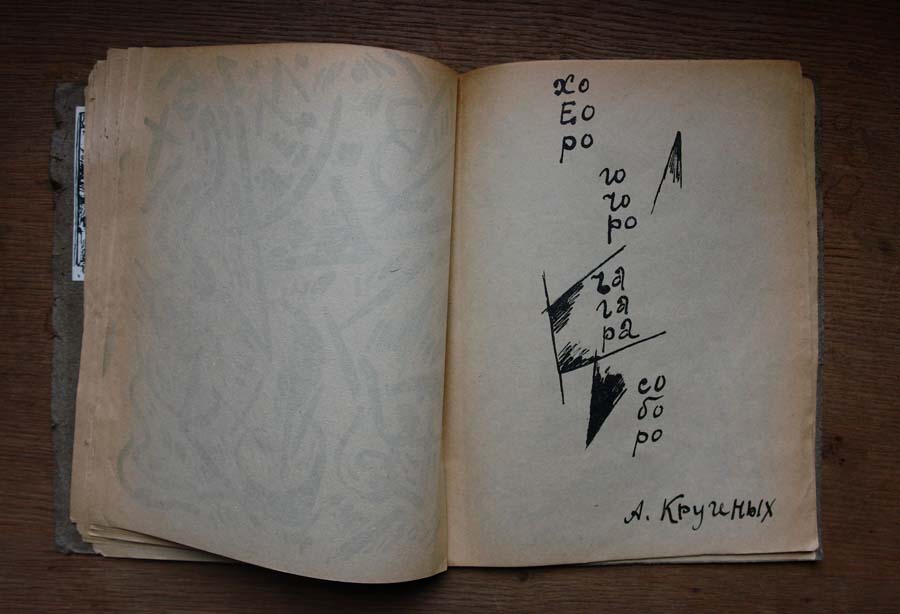 хо
Ео
ро
го
чо
ро
ча
га
ра
со
бо
ро
А. Кручёных